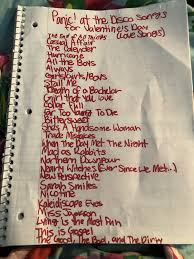 Panic! at the Disco Songs
for Valentine's Day
(Love Songs)
The End of All Things
Casual Affair
The Calendar
Hurricane
All the Boys
Always
Girls/Girls/Boys
Stall Me
Death of a Bachelor
Girl That You Love
Collar Full
Far Too Young To Die
Bittersweet
She's A Handsome Woman
Trade Mistakes
When the Day Met The Night
Mad as Rabbits
Northern Downpour
Nearly Witches (Ever Since We Met..)
New Perspective
Sarah Smiles
Nicotine
Kaleidoscope Eyes
Miss Jackson
Lying is the Most Fun
This is Gospel
The Good, The Bad, and The Dirty